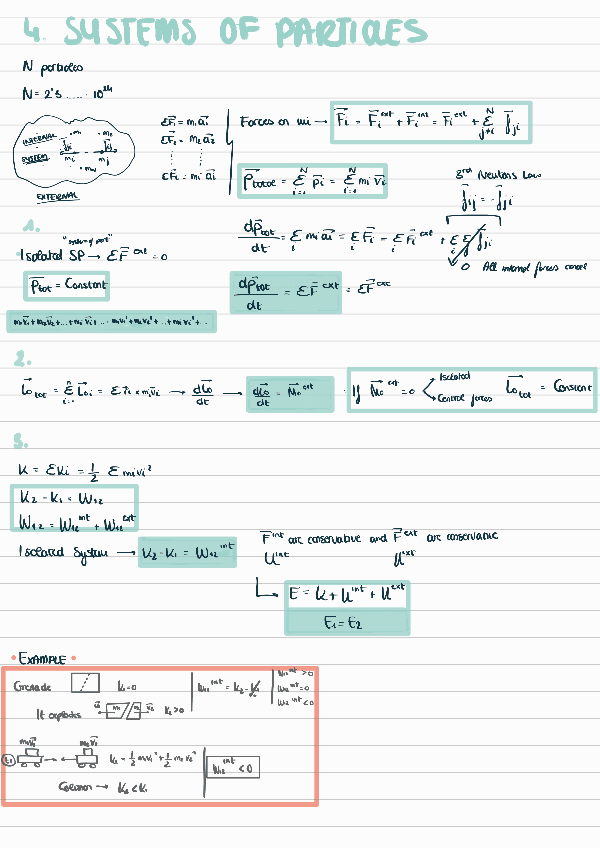 4. SYSTEMS OF PARTICLES
N particles
N = 2's ...... 10^th
INTERNAL
SYSTEM
m₁ m₂
mᵢ mⱼ
EXTERNAL
ΣF₁ = m₁a₁
ΣF₂ = m₂a₂
ΣFᵢ = mᵢaᵢ
Forces on mi → Fᵢ = Fᵢ^ext + Fᵢ^int = Fᵢ^ext + Σ(j≠i)^N fⱼᵢ
p total = Σ(i=1)^N pᵢ = Σ(i=1)^N mᵢvᵢ
3rd Newtons Law
fᵢⱼ = -fⱼᵢ
1.
Isolated SP → ΣF^ext = 0
p tot = Constant
dp tot/dt = Σᵢ mᵢaᵢ = Σᵢ Fᵢ = Σᵢ Fᵢ^ext + ΣᵢΣ fⱼᵢ
0 All internal forces cancel
dp tot/dt = ΣF^ext = ΣF^ext
m₁v₁ + m₂v₂ + ... + mᵢvᵢ + ... = m₁v₁' + m₂v₂' + ... + mᵢvᵢ' + ...
2.
L₀ tot = Σ(i=1)^n L₀ᵢ = Σ rᵢ × mᵢvᵢ → dL₀/dt → dL₀/dt = M₀^ext
If M₀^ext = 0
Isolated
Central forces
L₀ tot = Constant
3.
K = ΣKi = 1/2 Σ mᵢvᵢ²
K₂ - K₁ = W₁₂
W₁₂ = W₁₂^int + W₁₂^ext
Isolated System → K₂ - K₁ = W₁₂^int
F^int are conservative and F^ext are conservative
U^int U^ext
E = K + U^int + U^ext
E₁ = E₂
• EXAMPLE •
Grenade K₁ = 0
It explodes K₂ > 0
W₁₂^int = K₂ - K₁
W₁₂^int > 0
W₁₂^int = 0
W₁₂^int < 0
m₁v₁ m₂v₂
t₁
K₁ = 1/2 m₁v₁² + 1/2 m₂v₂²
Collision → K₂ < K₁
W₁₂^int < 0